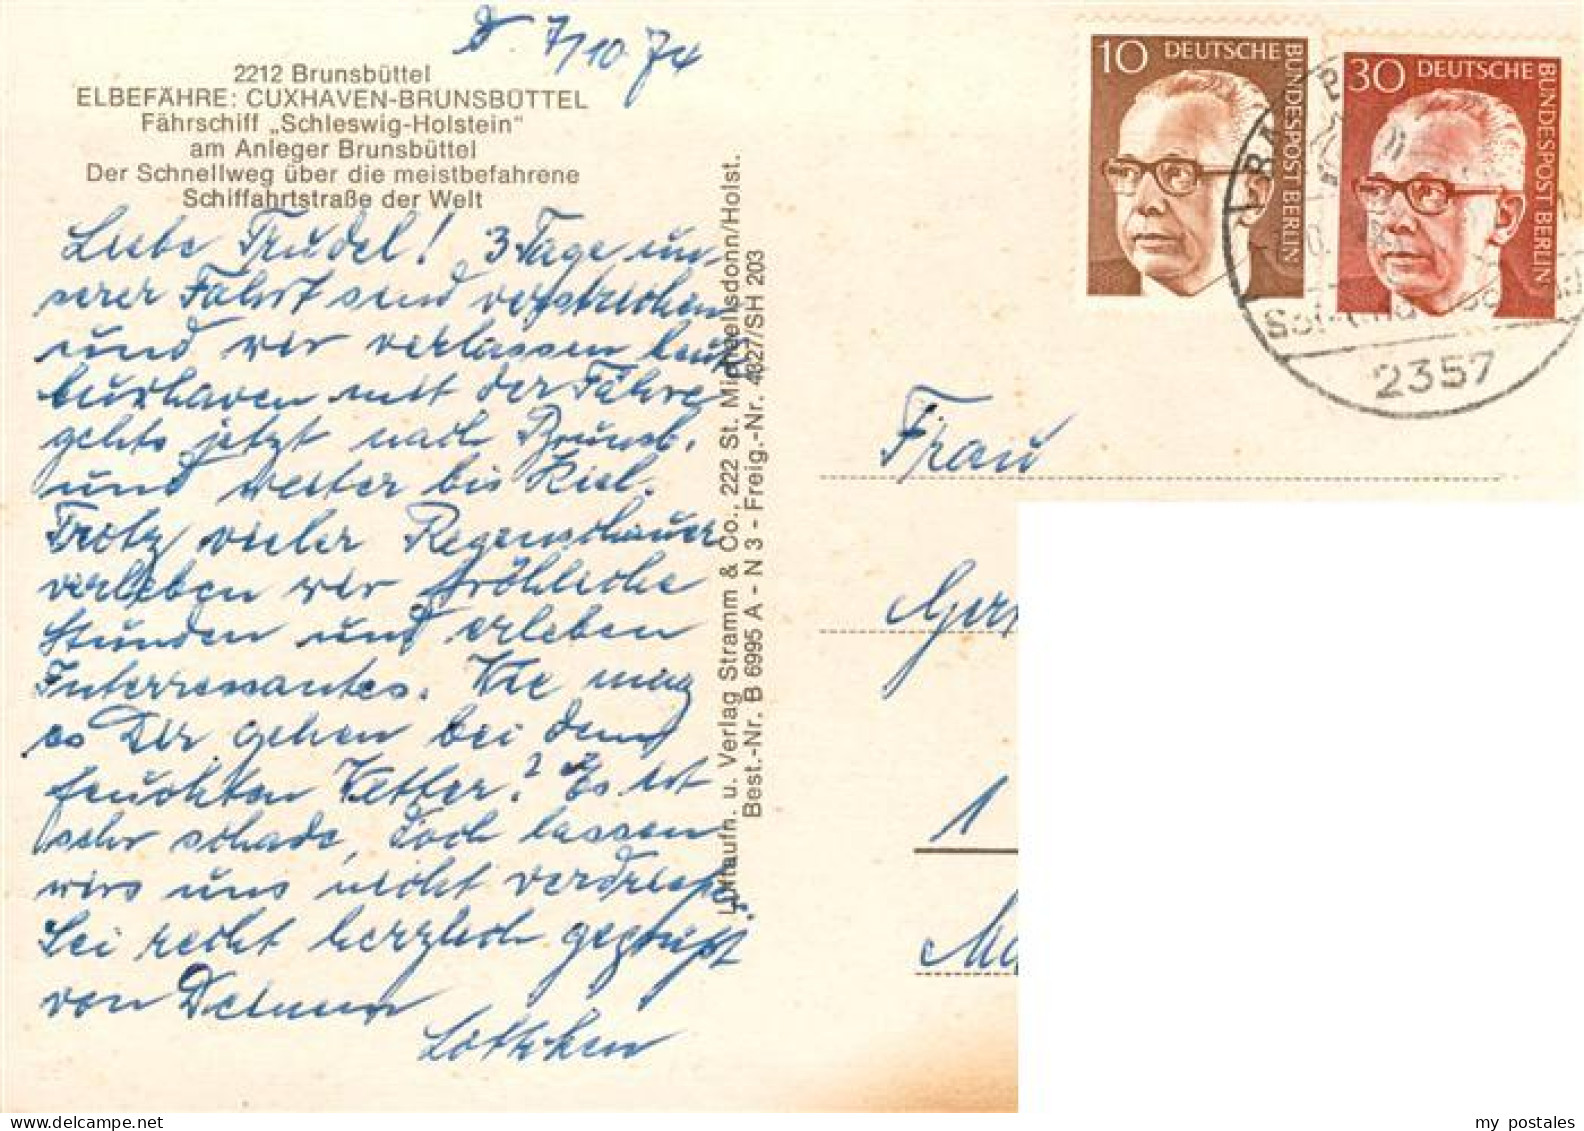 D. 7/10 74
2212 Brunsbüttel
ELBEFÄHRE: CUXHAVEN-BRUNSBÜTTEL
Fährschiff „Schleswig-Holstein"
am Anleger Brunsbüttel
Der Schnellweg über die meistbefahrene
Schiffahrtstraße der Welt
Liebe Trudel! 3 Tage un-
serer Fahrt sind verstrichen
und wir verlassen heut
Cuxhaven mit der Fähre
gehts jetzt nach Brunsb.
und weiter bis Kiel.
Trotz vieler Regenschauer
verleben wir fröhliche
Stunden und erleben
Interressantes. Wie mag
es Dir gehen bei dem
feuchten Wetter? Es ist
sehr schade, doch lassen
wirs uns nicht verdrießen.
Sei recht herzlich gegrüßt
von Deinem
Lottchen
Luftaufn. u. Verlag Stramm & Co., 222 St. Michaelisdonn/Holst.
Best.-Nr. B 6995 A - N 3 - Freig.-Nr. 4327/SH 203
10 DEUTSCHE BUNDESPOST BERLIN
30 DEUTSCHE BUNDESPOST BERLIN
2357
Frau
Ger
1
Ma
my postales